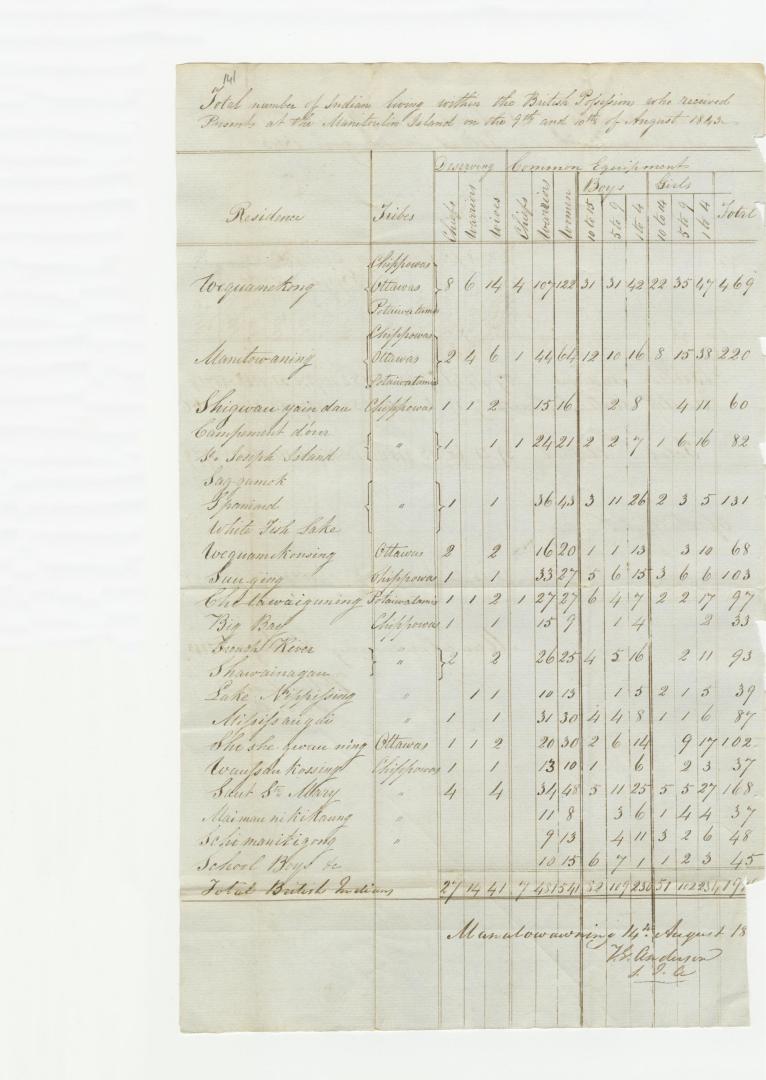 141
Total number of Indian living within the British Possession who received
Presents at the Manitoulin Island on the 9th and 10th of August 1843.
Deserving Common Equipment
Boys Girls
Residence Tribes Chiefs Warriors Wives Chiefs Warriors Women 10 to 15 5 to 9 1 to 4 10 to 14 5 to 9 1 to 4 Total
Chippowas
Wequamekong Ottawas 8 6 14 4 107 122 31 31 42 22 35 47 469
Potaiwatamis
Chippowas
Manitowaning Ottawas 2 4 6 1 44 64 12 10 16 8 15 38 220
Potaiwatamis
Shigwau yain dau Chippowas 1 1 2 15 16 2 8 4 11 60
Campement d'our
St. Joseph Island " 1 1 1 24 21 2 2 7 1 6 16 82
Sag-gamok
Spanired " 1 1 36 43 3 11 26 2 3 5 131
White Fish Lake
Wequamekonsing Ottawas 2 2 16 20 1 1 13 3 10 68
Sun ging Chippowas 1 1 33 27 5 6 15 3 6 6 103
Che ta waiguning Potaiwatamis 1 1 2 1 27 27 6 4 7 2 2 17 97
Big Bay Chippowas 1 1 15 9 1 4 2 33
French River
Shawainagau " 2 2 26 25 4 5 16 2 11 93
Lake Nippissing " 1 1 10 13 1 5 2 1 5 39
Missisaugii " 1 1 31 30 4 4 8 1 1 6 87
She she gwau ning Ottawas 1 1 2 20 30 2 6 14 9 17 102
Waussau kossing Chippowas 1 1 13 10 1 6 2 3 37
Saut Ste Mary " 4 4 34 48 5 11 25 5 5 27 168
Maimau nikikaung " 11 8 3 6 1 4 4 37
Schimanitigong " 9 13 4 11 3 2 6 48
School Boys &c 10 15 6 7 1 1 2 3 45
Total British Indians 27 14 41 7 481 541 82 109 230 51 102 234 191
Manatowawning 14th August 18
T.G. Anderson
S. I. A